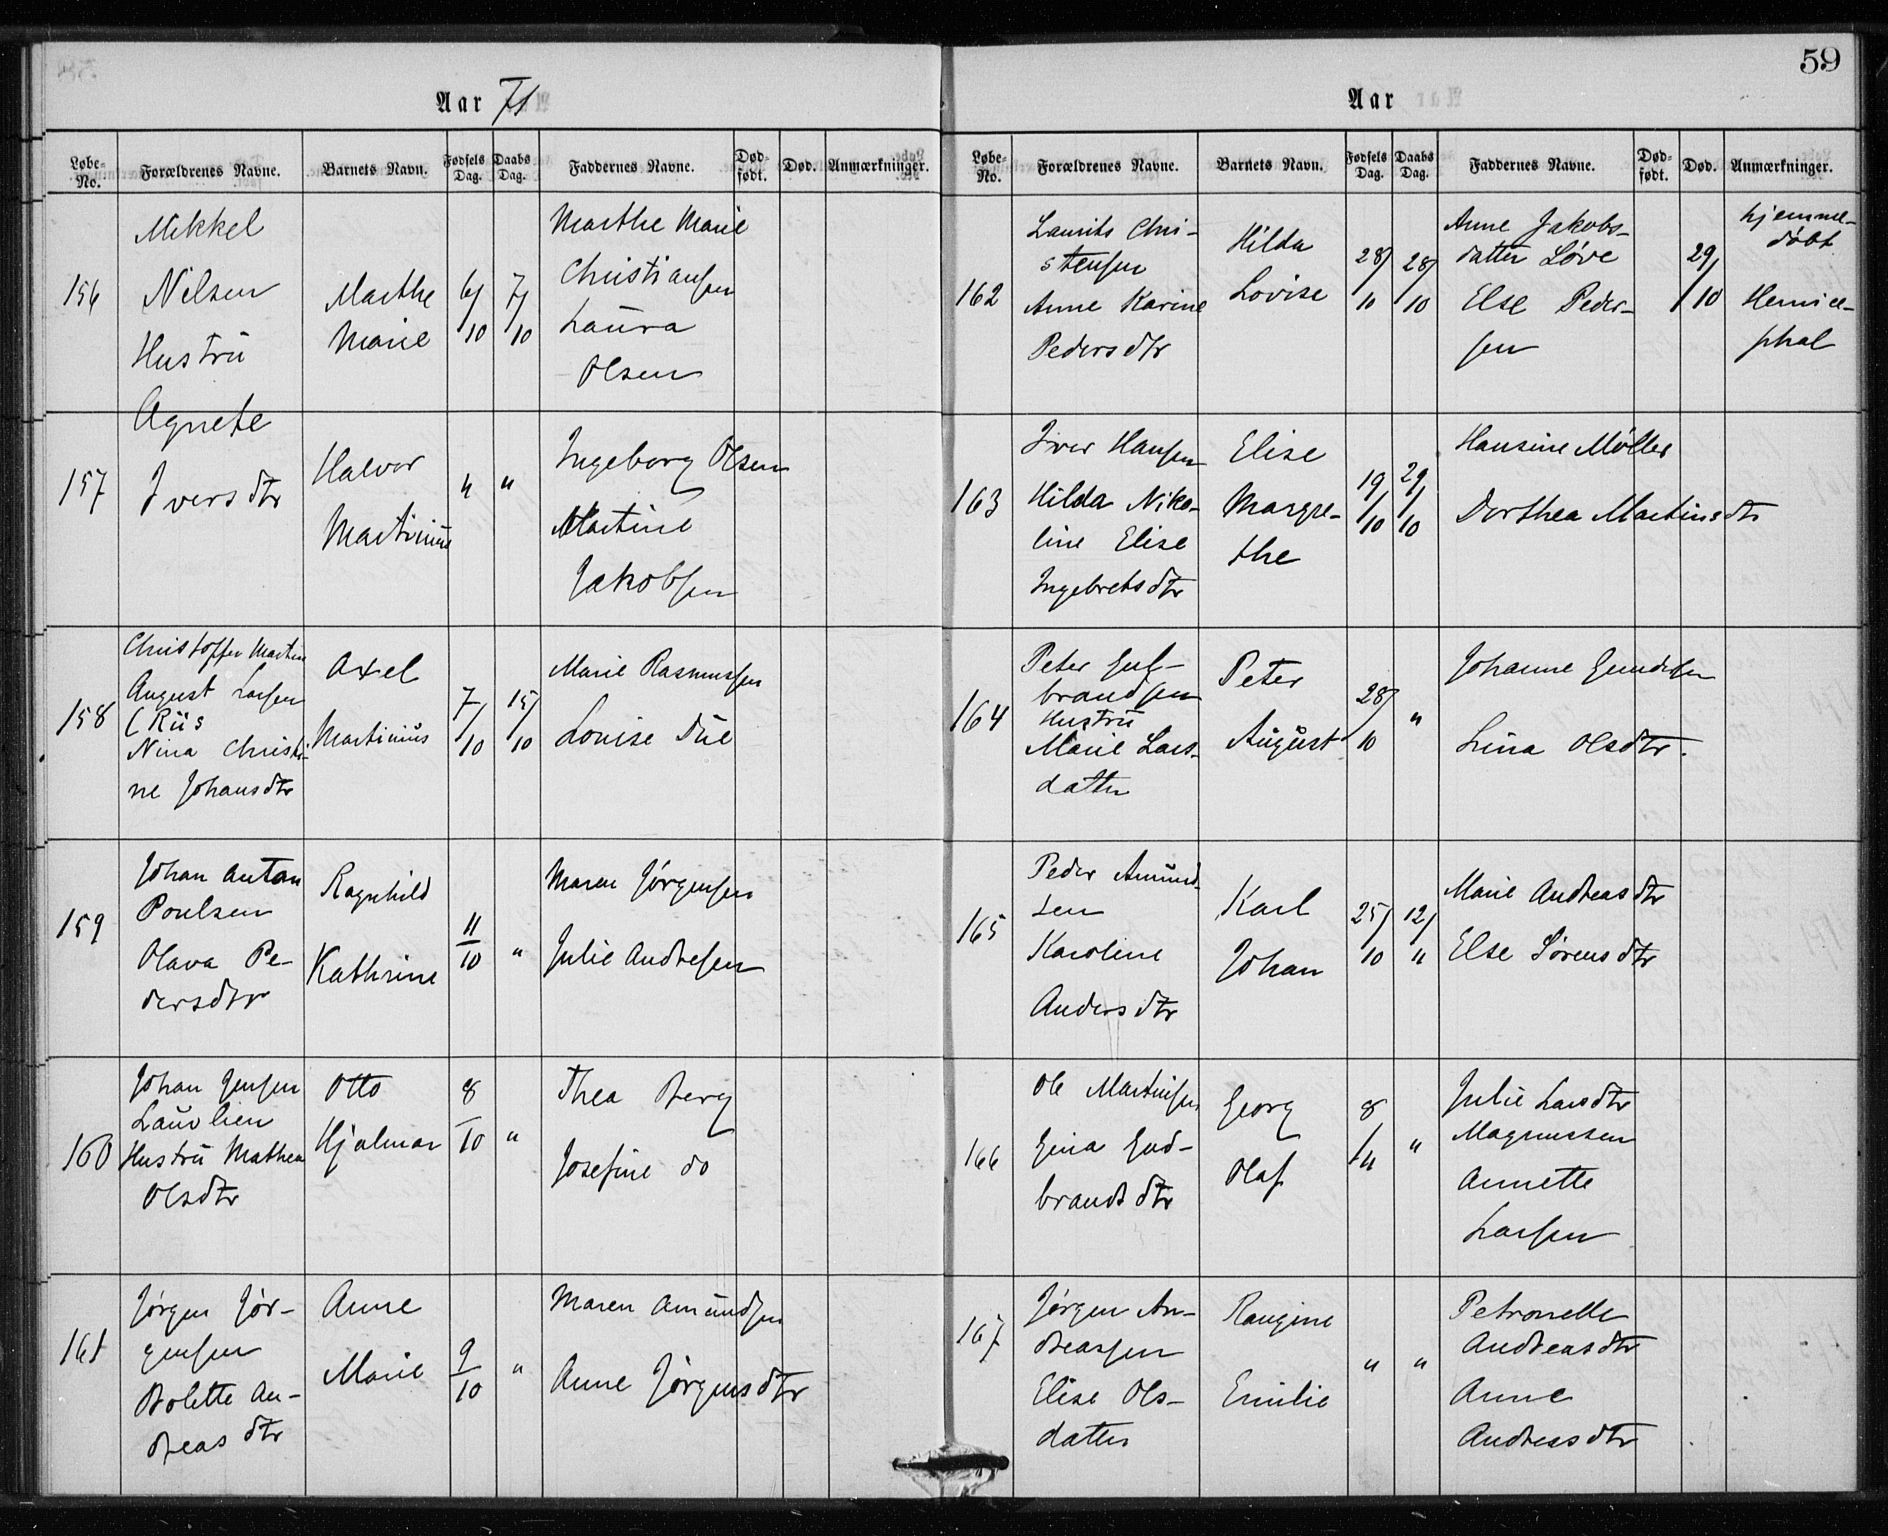 59
Aar 71
Løbe-No. Forældrenes Navne. Barnets Navn. Fødsels Dag. Daabs Dag. Faddernes Navne. Død-født. Død. Anmærkninger.
156
Mikkel
Nilsen
Hustrü
Agnete
Iversdtr
Marthe
Marie
6/10
7/10
Marthe Marie
Christiansen
Laüra
Olsen
157
Halvor
Martiniüs
"
"
Ingeborg Olsen
Martine
Jakobsen
158
Christoffer Martin
August Larsen
(Riis
Nina Christi-
ne Johansdtr
Axel
Martiniüs
7/10
15/10
Marie Rasmussen
Louise Düe
159
Johan Anton
Poulsen
Olava Pe-
dersdtr
Ragnhild
Kathrine
11/10
"
Maren Jørgensen
Julie Andresen
160
Johan Jensen
Laüvlien
Hustrü Mathea
Olsdtr
Otto
Hjalmar
8/10
"
Thea Berg
Josefine do
161
Jørgen Jør-
gensen
Bolette An-
dreasdtr
Anne
Marie
9/10
"
Maren Amündsen
Anne Jørgensdtr
Aar
Løbe-No. Forældrenes Navne. Barnets Navn. Fødsels Dag. Daabs Dag. Faddernes Navne. Død-født. Død. Anmærkninger.
162
Laurits Chri-
stensen
Anne Karine
Pedersdtr
Hilda
Lovise
28/10
28/10
Anne Jakobs-
datter Løve
Else Peder-
sen
29/10
hjemme-
døbt
Hemice-
phal
163
Iver Hansen
Hilda Niko-
line Elise
Ingebretsdtr
Elise
Margre-
the
19/10
29/10
Hansine Møller
Dorthea Martinsdtr
164
Peter Gul-
brandsen
Hustrü
Marie Lars-
datter
Peter
Aügüst
28/10
"
Johanne Gundersen
Lina Olsdtr.
165
Peder Amünd-
sen
Karoline
Andersdtr
Karl
Johan
25/10
12/11
Marie Andreasdtr
Else Sørensdtr
166
Ole Martinsen
Gina Gud-
brandsdtr
Georg
Olaf
8/11
"
Julie Larsdtr
Magnussen
Annette
Larsen
167
Jørgen An-
dreassen
Elise Ols-
datter
Rangine
Emilie
"
"
Petronelle
Andreasdtr
Anne
Andreasdtr